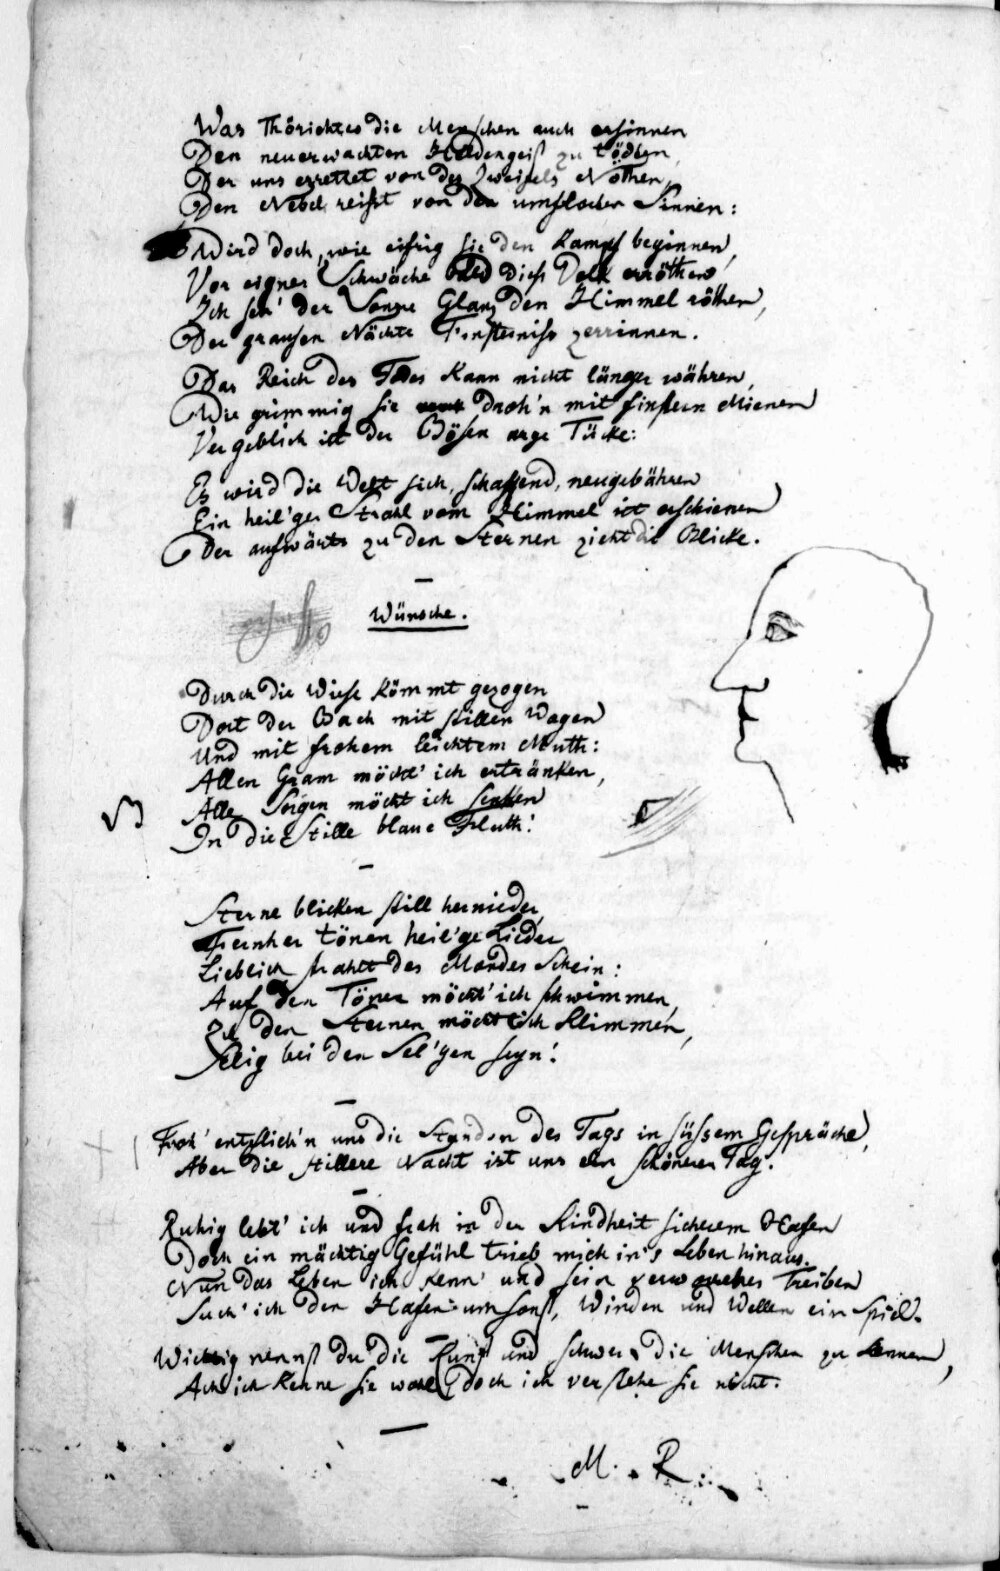 Was Thörichtes die Menschen auch ersinnen
Den neuerwachten Heldengeist zu tödten,
Der uns errettet von des Zweifels Nöthen,
Den Nebel reißt von den umflorten Sinnen:
Wird doch, wie eifrig sie den Kampf beginnen,
Vor eigner Schwäche bald dieß Volk erröthen
Ich seh' der Sonne Glanz den Himmel röthen,
Der grausen Nächte Finsterniß zerrinnen.
Das Reich des Todes kann nicht länger währen,
Wie grimmig sie droh'n mit finstern Mienen
Vergeblich ist der Bösen arge Tücke:
Es wird die Welt sich, schaffend, neugebähren
Ein heil'ger Strahl vom Himmel ist erschienen
Der aufwärts zu den Sternen zieht die Blicke.
Wünsche.
Durch die Wiese kömmt gezogen
Dort der Bach mit stillen Wogen
Und mit frohem leichtem Muth:
Allen Gram möcht' ich ertränken,
Alle Sorgen möcht ich senken
In die stille blaue Fluth!
Sterne blicken still hernieder,
Fernher tönen heil'ge Lieder
Lieblich strahlt des Mondes Schein:
Auf den Tönen möcht' ich schwimmen,
Zu den Sternen möcht ich klimmen,
Selig bei den Sel'gen seyn!
Froh' entschlich'n uns die Stunden des Tags in süssem Gespräche,
Aber die stillere Nacht ist uns ein schönerer Tag.
Ruhig lebt' ich und froh in der Kindheit sicherem Hafen
Doch ein mächtig Gefühl trieb mich in's Leben hinaus.
Nun das Leben ich kenn' und sein verworrenes Treiben
Such' ich den Hafen umsonst, Winden und Wellen ein Spiel.
Wichtig nennst du die Kunst und schwer, die Menschen zu kennen,
Ach ich kenne sie wohl, doch ich verstehe sie nicht.
M. R.